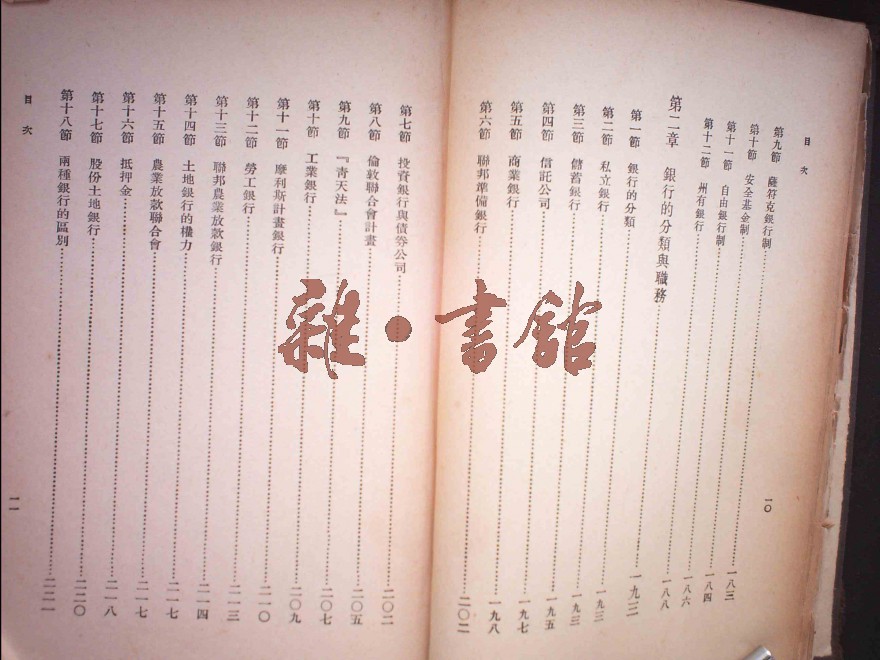 目次
一〇
第九節 薩符克銀行制……一八三
第十節 安全基金制……一八四
第十一節 自由銀行制……一八六
第十二節 州有銀行……一八八
第二章 銀行的分類與職務……一九三
第一節 銀行的分類……一九三
第二節 私立銀行……一九三
第三節 儲蓄銀行……一九五
第四節 信託公司……一九七
第五節 商業銀行……一九八
第六節 聯邦準備銀行……二〇二
第七節 投資銀行與債券公司……二〇二
第八節 倫敦聯合會計畫……二〇五
第九節 『青天法』……二〇七
第十節 工業銀行……二〇九
第十一節 摩利斯計畫銀行……二一〇
第十二節 勞工銀行……二一三
第十三節 聯邦農業放款銀行……二一四
第十四節 土地銀行的權力……二一七
第十五節 農業放款聯合會……二一七
第十六節 抵押金……二一八
第十七節 股份土地銀行……二二〇
第十八節 兩種銀行的區別……二二一
目次
一一
雜·書館